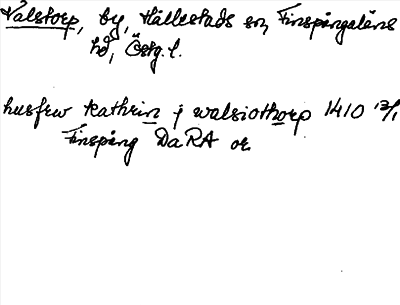 Valstorp, by, Hällestads sn, Finspångaläns
hd, Östg. l.
husfrw kathrin j walsiothorp 1410 12/1
Finspång DaRA or.